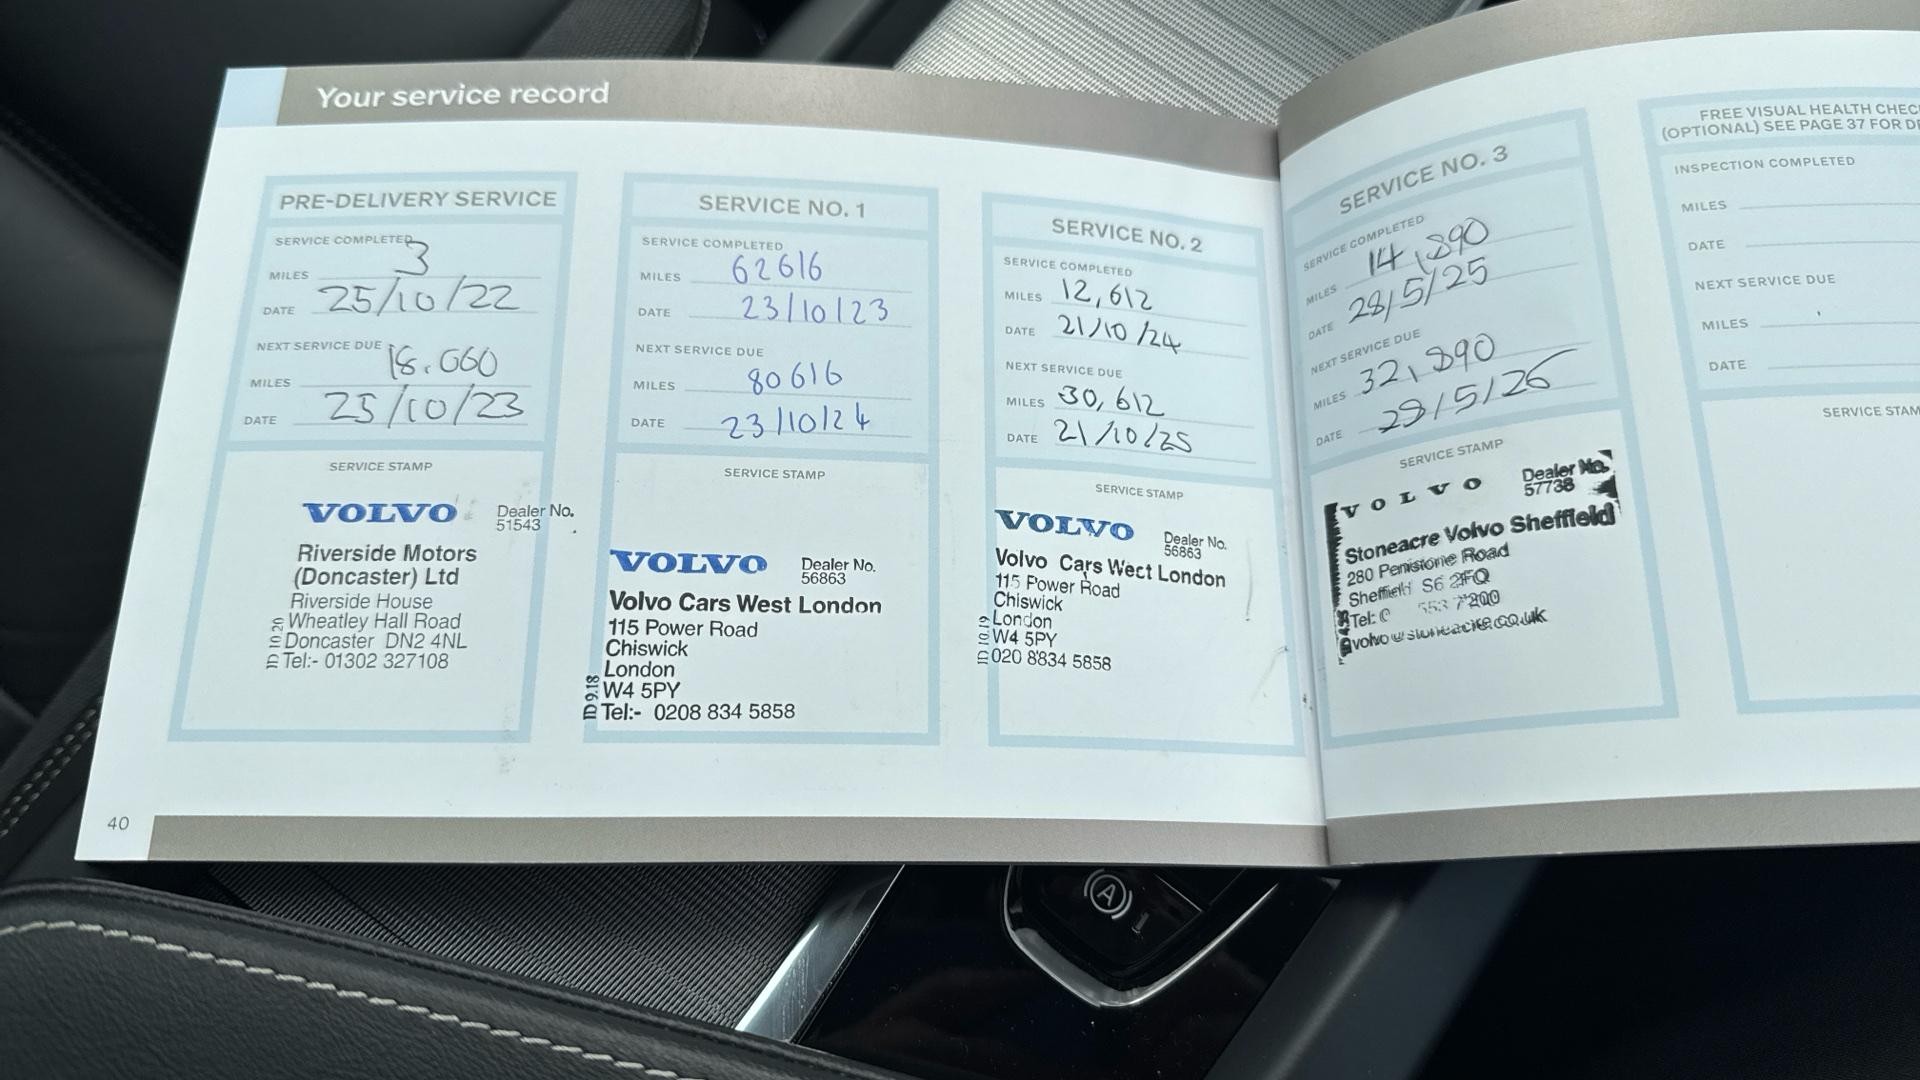 Your service record
PRE-DELIVERY SERVICE
SERVICE COMPLETED
MILES 3
DATE 25/10/22
NEXT SERVICE DUE
MILES 18.000
DATE 25/10/23
SERVICE STAMP
VOLVO Dealer No.
51543
Riverside Motors
(Doncaster) Ltd
Riverside House
Wheatley Hall Road
Doncaster DN2 4NL
Tel:- 01302 327108
ID 10.20
SERVICE NO. 1
SERVICE COMPLETED
MILES 62616
DATE 23/10/23
NEXT SERVICE DUE
MILES 80616
DATE 23/10/24
SERVICE STAMP
VOLVO Dealer No.
56863
Volvo Cars West London
115 Power Road
Chiswick
London
W4 5PY
Tel:- 0208 834 5858
ID 9.18
SERVICE NO. 2
SERVICE COMPLETED
MILES 12,612
DATE 21/10/24
NEXT SERVICE DUE
MILES 30,612
DATE 21/10/25
SERVICE STAMP
VOLVO Dealer No.
56863
Volvo Cars West London
115 Power Road
Chiswick
London
W4 5PY
020 8834 5858
ID 10.19
40
SERVICE NO. 3
SERVICE COMPLETED
MILES 14,890
DATE 28/5/25
NEXT SERVICE DUE
MILES 32,890
DATE 29/5/26
SERVICE STAMP
VOLVO Dealer No.
57738
Stoneacre Volvo Sheffield
280 Penistone Road
Sheffield S6 2FQ
Tel: 553 7200
FREE VISUAL HEALTH CHEC
(OPTIONAL) SEE PAGE 37 FOR DE
INSPECTION COMPLETED
MILES
DATE
NEXT SERVICE DUE
MILES
DATE
SERVICE STAM
A